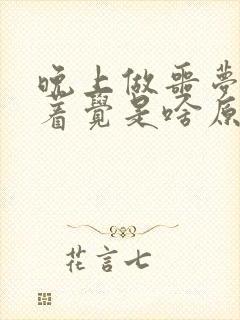 晚上做噩夢
着覺是啥原
花言七